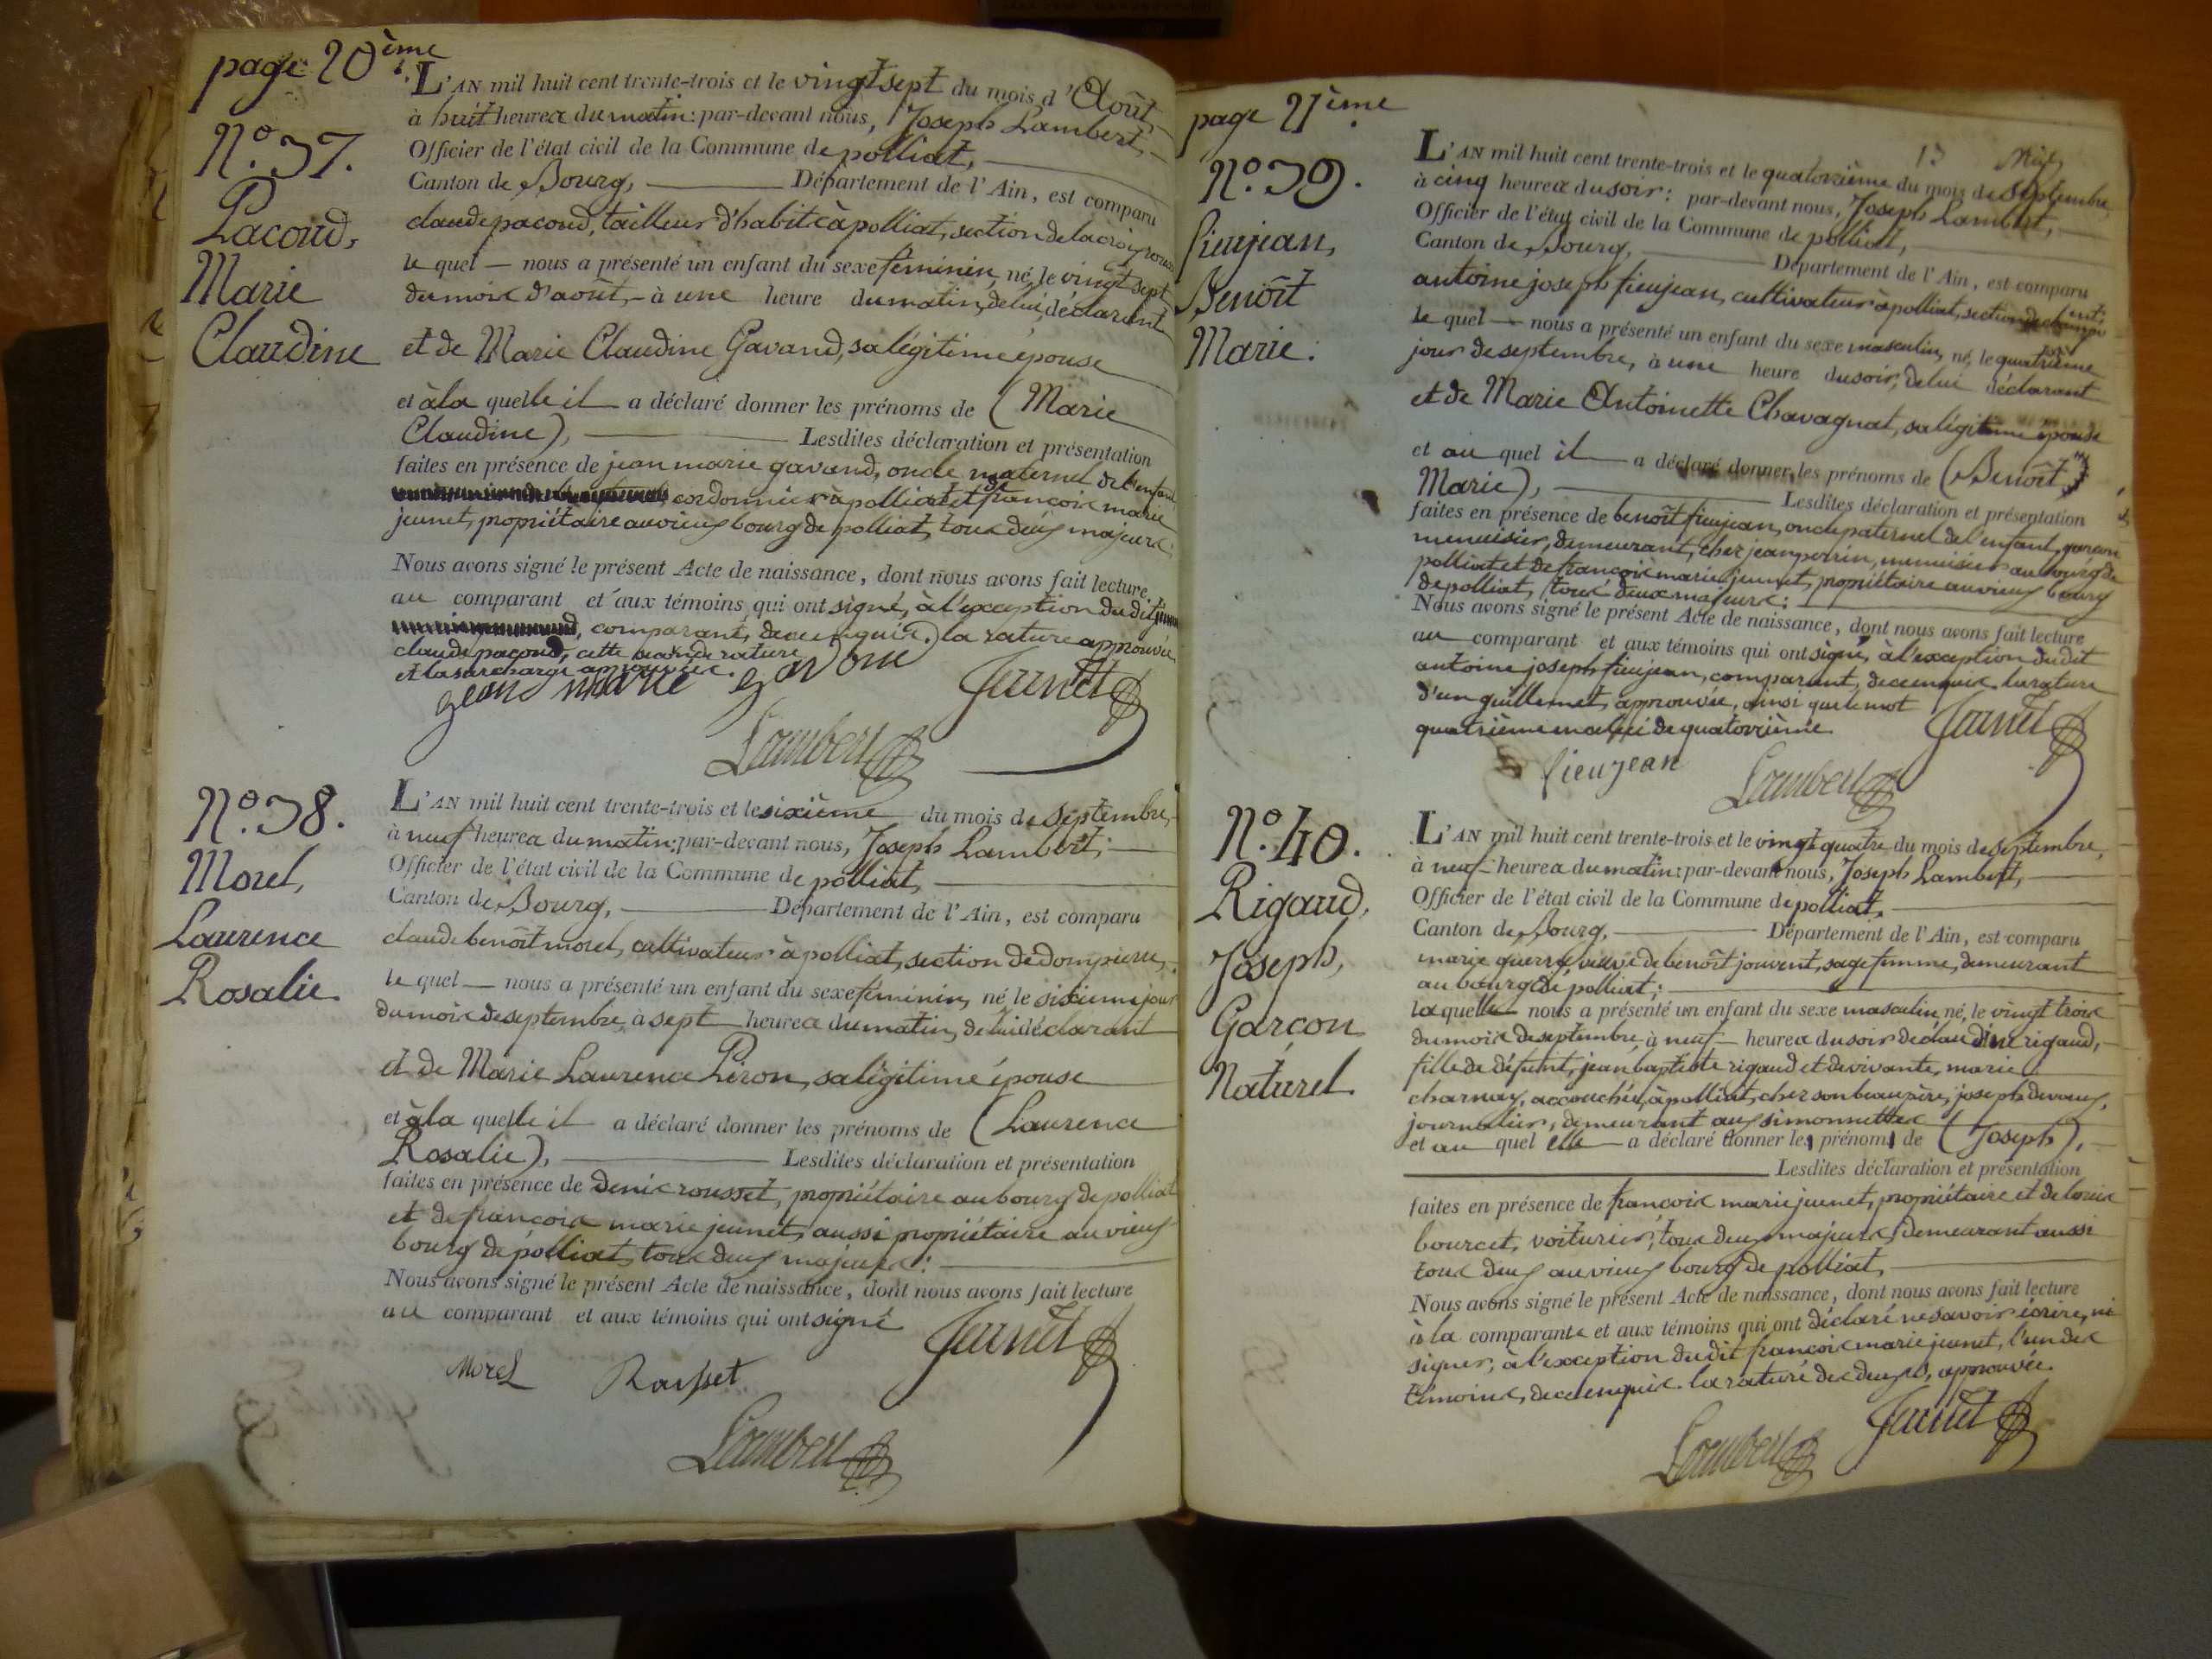 page 20ème
N.° 37.
Pacoud,
Marie
Claudine
L'AN mil huit cent trente-trois et le vingt sept du mois d'Août,
à huit heures du matin: par-devant nous, Joseph Lambert,
Officier de l'état civil de la Commune de polliat,
Canton de Bourg, Département de l'Ain, est comparu
claude pacoud, tailleur d'habits à polliat, section de la croix
le quel nous a présenté un enfant du sexe féminin, né, le vingt sept
du mois d'août, à une heure du matin, de lui déclarant
et de Marie Claudine Gavand, sa légitime épouse
et à la quelle il a déclaré donner les prénoms de (Marie
Claudine), Lesdites déclaration et présentation
faites en présence de jean marie gavand, oncle maternel de l'enfant
cordonnier à polliat et de françois marie
jeunet, propriétaire au vieux bourg de polliat, tous deux majeurs;
Nous avons signé le présent Acte de naissance, dont nous avons fait lecture
au comparant et aux témoins qui ont signé, à l'exception du dit
comparant, de ce enquis. la rature approuvée
claude pacoud, cette seconde rature
et la surcharge approuvées.
jean marie gavand Jeunet
Lambert
N.° 38.
Morel,
Laurence
Rosalie.
L'AN mil huit cent trente-trois et le sixième du mois de septembre,
à neuf heures du matin: par-devant nous, Joseph Lambert,
Officier de l'état civil de la Commune de polliat,
Canton de Bourg, Département de l'Ain, est comparu
claude benoît morel, cultivateur à polliat, section de dompierre,
le quel nous a présenté un enfant du sexe féminin, né, le sixième jour
du mois de septembre, à sept heures du matin, de lui déclarant
et de Marie Laurence Piron, sa légitime épouse
et à la quelle il a déclaré donner les prénoms de (Laurence
Rosalie), Lesdites déclaration et présentation
faites en présence de denis rousset, propriétaire au bourg de polliat
et de françois marie jeunet, aussi propriétaire au vieux
bourg de polliat, tous deux majeurs:
Nous avons signé le présent Acte de naissance, dont nous avons fait lecture
au comparant et aux témoins qui ont signé
Jeunet
Morel Rousset
Lambert
page 21ème
N.° 39.
fieujean,
Benoît
Marie.
13
L'AN mil huit cent trente-trois et le quatorzième du mois de septembre,
à cinq heures du soir: par-devant nous, Joseph Lambert,
Officier de l'état civil de la Commune de polliat,
Canton de Bourg, Département de l'Ain, est comparu
antoine joseph fieujean, cultivateur à polliat, section
le quel nous a présenté un enfant du sexe masculin, né, le quatrième
jour de septembre, à une heure du soir, de lui déclarant
et de Marie Antoinette Chavagnat, sa légitime épouse
et au quel il a déclaré donner les prénoms de (Benoît
Marie), Lesdites déclaration et présentation
faites en présence de benoît fieujean, oncle paternel de l'enfant, garçon
menuisier, demeurant, chez jean perrin, menuisier au bourg de
polliat et de françois marie jeunet, propriétaire au vieux bourg
de polliat, tous deux majeurs:
Nous avons signé le présent Acte de naissance, dont nous avons fait lecture
au comparant et aux témoins qui ont signé, à l'exception du dit
antoine joseph fieujean, comparant, de ce enquis. la rature
d'un guillemet, approuvée, ainsi que le mot
quatrième au lieu de quatorzième.
Jeunet
fieujean
Lambert
N.° 40.
Rigaud,
Joseph,
Garçon
Naturel
L'AN mil huit cent trente-trois et le vingt quatre du mois de septembre,
à neuf heures du matin: par-devant nous, Joseph Lambert,
Officier de l'état civil de la Commune de polliat,
Canton de Bourg, Département de l'Ain, est comparu
marie veuve de benoît jouvent, sage femme, demeurant
au bourg de polliat;
la quelle nous a présenté un enfant du sexe masculin, né, le vingt trois
du mois de septembre à neuf heures du soir de claudine rigaud,
fille de défunt, jean baptiste rigaud et de vivante, marie
charnay, accouchée, à polliat, chez son beau père, joseph devaux,
journalier, demeurant aux simonnettes
et au quel elle a déclaré donner les prénoms de (Joseph),
Lesdites déclaration et présentation
faites en présence de françois marie jeunet, propriétaire et de
bourcet, voiturier, tous deux majeurs, demeurant aussi
tous deux au vieux bourg de polliat,
Nous avons signé le présent Acte de naissance, dont nous avons fait lecture
à la comparante et aux témoins qui ont déclaré ne savoir écrire, ni
signer, à l'exception du dit françois marie jeunet, l'un des
témoins, de ce enquis. la rature des deux s, approuvée.
Jeunet
Lambert